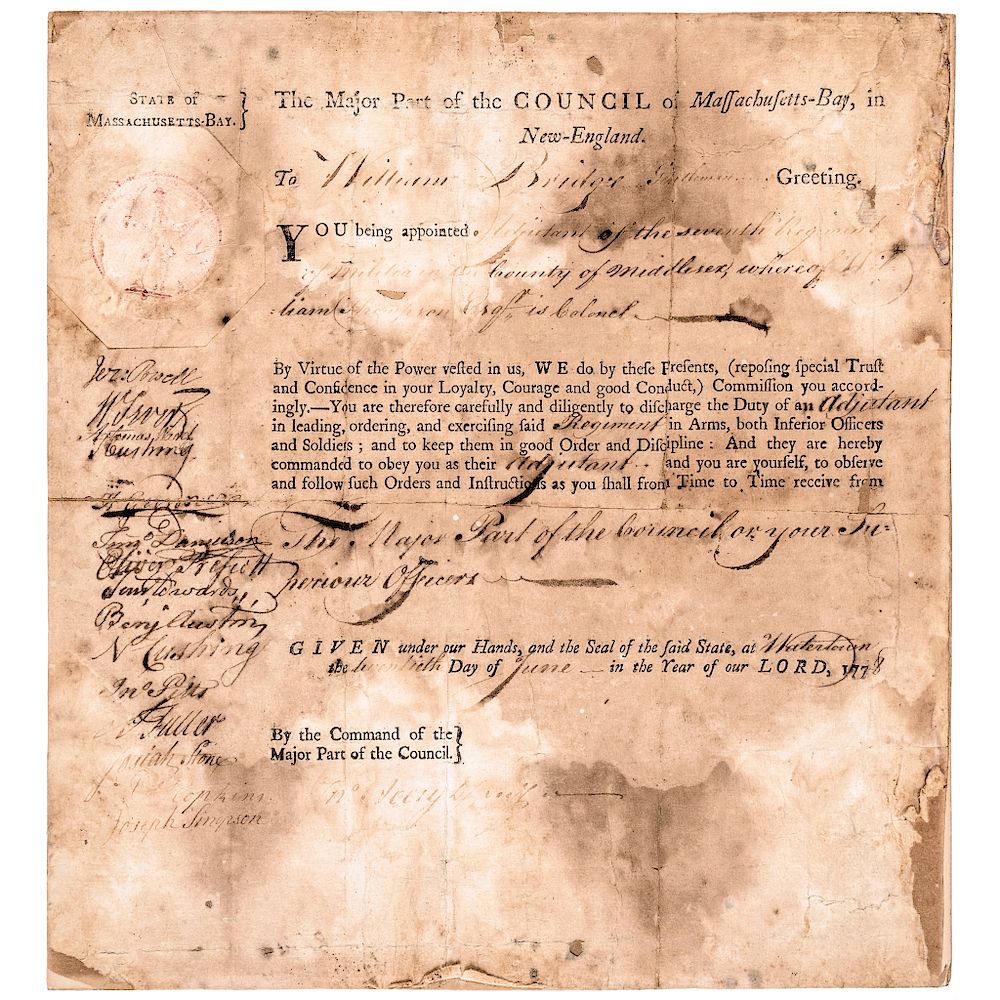 STATE of
MASSACHUSETTS-BAY. }
The Major Part of the COUNCIL of Maſſachuſetts-Bay, in
New-England.
To William Bridge Gentleman Greeting.
YOU being appointed Adjutant of the seventh Regiment
of Militia in the County of Middlesex, whereof Wil
:liam Thompson Esqr. is Colonel
By Virtue of the Power veſted in us, WE do by theſe Preſents, (repoſing ſpecial Truſt
and Confidence in your Loyalty, Courage and good Conduct,) Commiſſion you accord-
ingly.—You are therefore carefully and diligently to diſcharge the Duty of an Adjutant
in leading, ordering, and exerciſing ſaid Regiment in Arms, both Inferior Officers
and Soldiers ; and to keep them in good Order and Diſcipline : And they are hereby
commanded to obey you as their Adjutant and you are yourſelf, to obſerve
and follow ſuch Orders and Inſtructions as you ſhall from Time to Time receive from
The Major Part of the Council or your Su=
periour Officers
GIVEN under our Hands, and the Seal of the ſaid State, at Watertown
the twentieth Day of June in the Year of our LORD, 1778
By the Command of the }
Major Part of the Council. }
Jer: Powell
T Cushing
Oliver Prescott
Benj Austin
N Cushing
Jno Pitts
A Fuller
Josiah Stone
Joseph Simpson